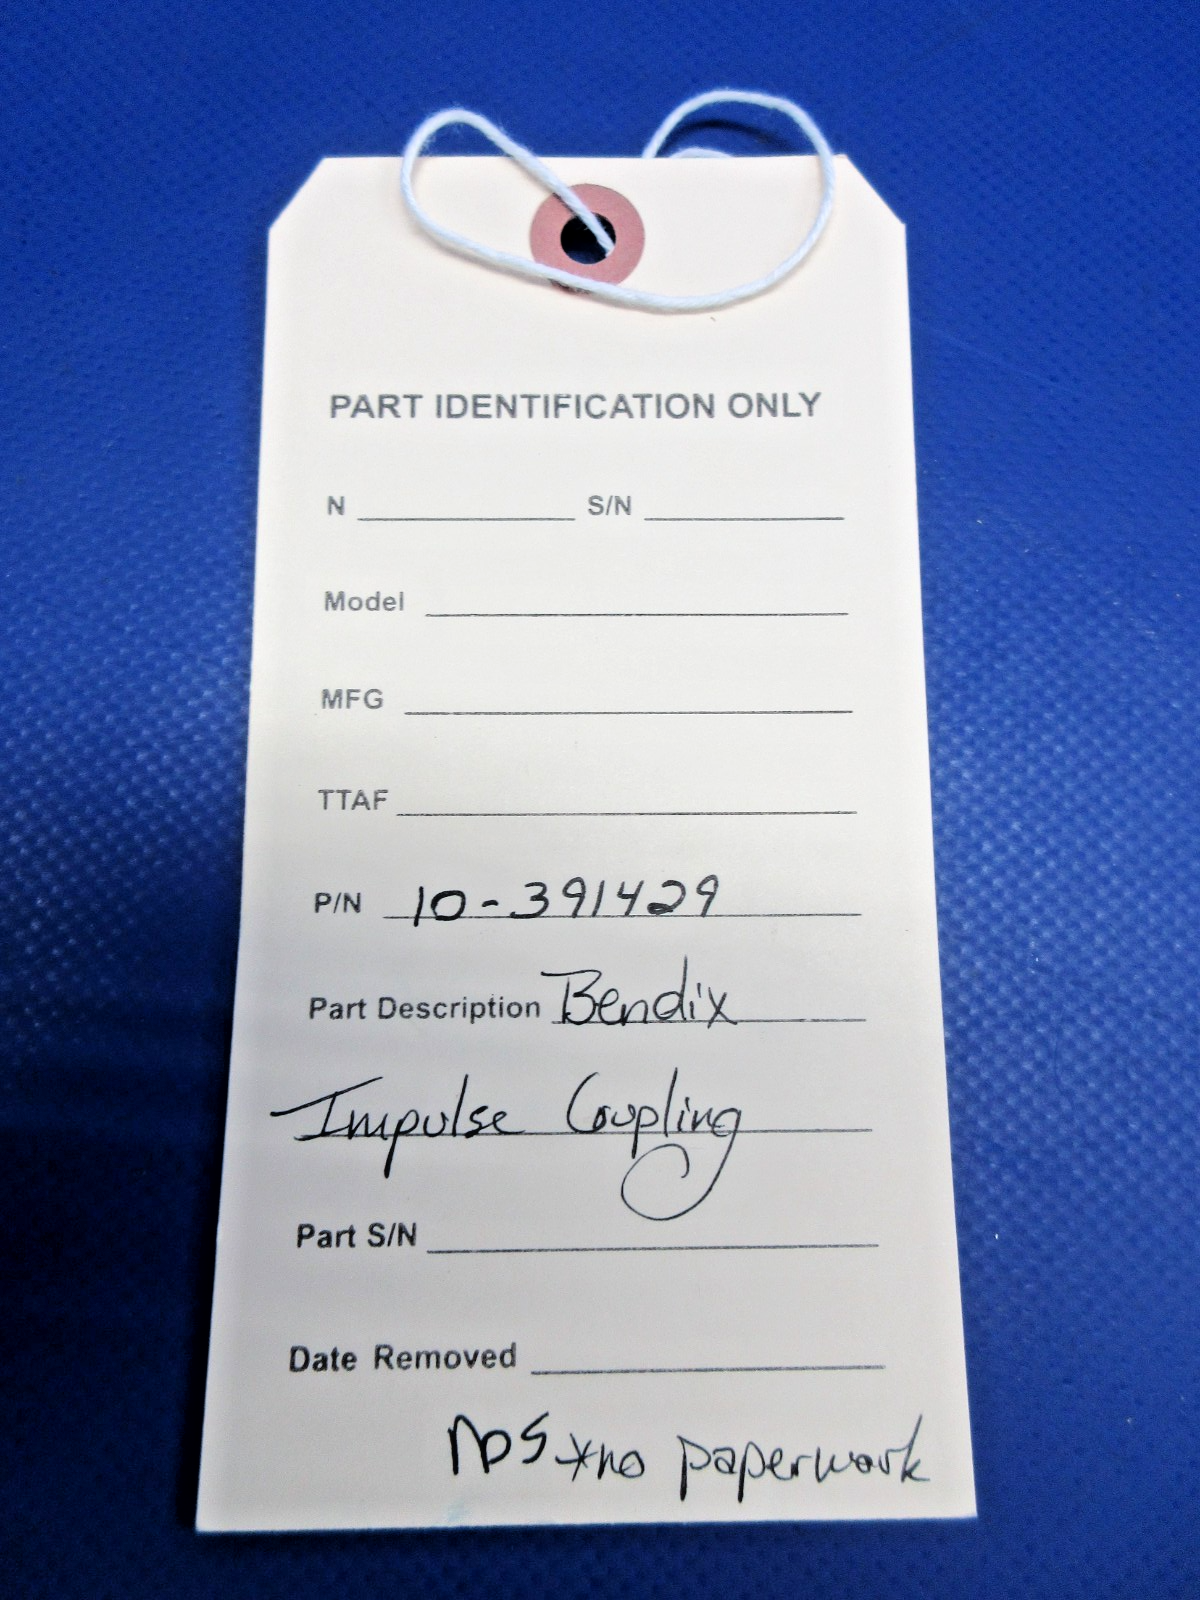 PART IDENTIFICATION ONLY
N S/N
Model
MFG
TTAF
P/N 10-391429
Part Description Bendix
Impulse Coupling
Part S/N
Date Removed
nos *no paperwork